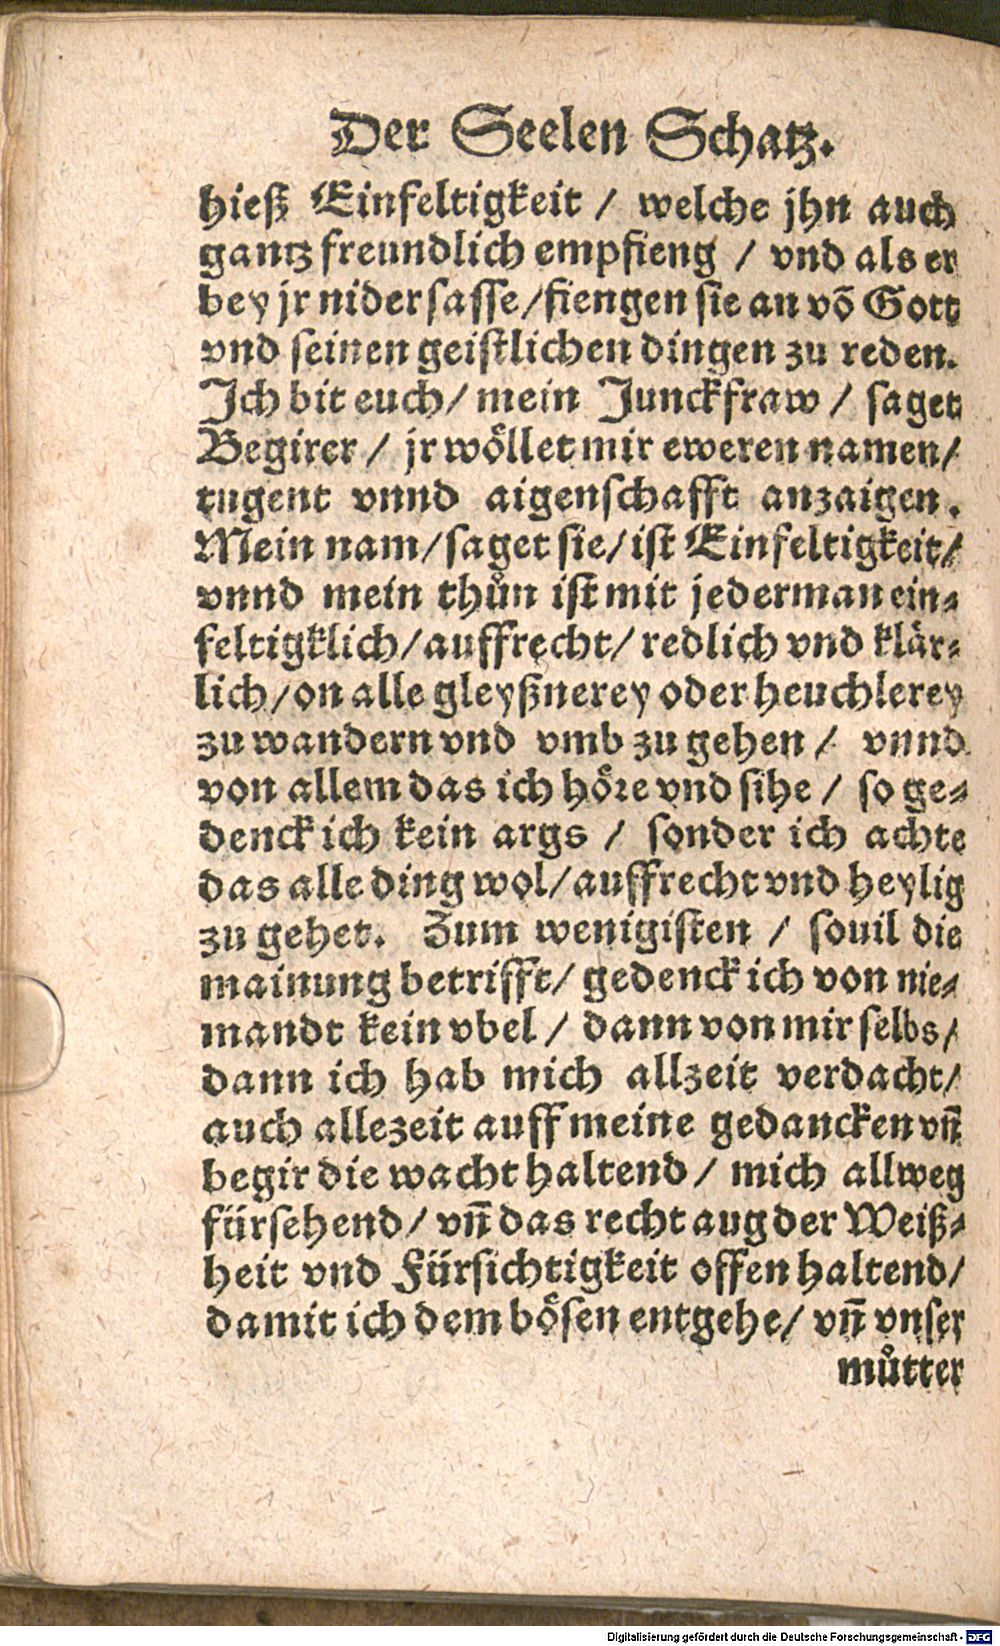 Der Seelen Schatz.
hieß Einfeltigkeit / welche jhn auch
gantz freundlich empfieng / vnd als er
bey jr nider sasse / fiengen sie an võ Gott
vnd seinen geistlichen dingen zu reden.
Ich bit euch / mein Junckfraw / saget
Begirer / jr wöllet mir eweren namen /
tugent vnnd aigenschafft anzaigen.
Mein nam / saget sie / ist Einfeltigkeit /
vnnd mein thůn ist mit jederman ein-
feltigklich / auffrecht / redlich vnd klär-
lich / on alle gleyßnerey oder heuchlerey
zu wandern vnd vmb zu gehen / vnnd
von allem das ich höre vnd sihe / so ge-
denck ich kein args / sonder ich achte
das alle ding wol / auffrecht vnd heylig
zu gehet. Zum wenigisten / souil die
mainung betrifft / gedenck ich von nie-
mandt kein vbel / dann von mir selbs /
dann ich hab mich allzeit verdacht /
auch allezeit auff meine gedancken vñ
begir die wacht haltend / mich allweg
fürsehend / vñ das recht aug der Weiß-
heit vnd Fürsichtigkeit offen haltend /
damit ich dem bösen entgehe / vñ vnser
můtter
Digitalisierung gefördert durch die Deutsche Forschungsgemeinschaft - DFG